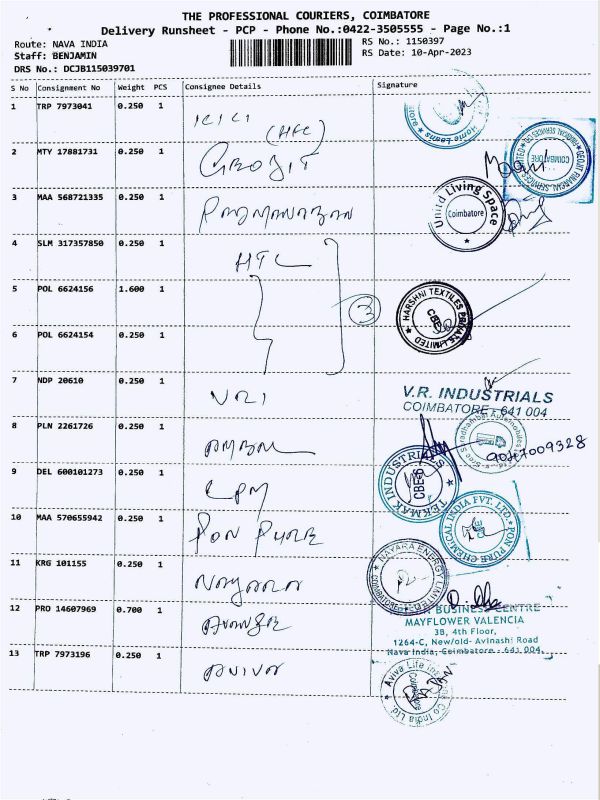 THE PROFESSIONAL COURIERS, COIMBATORE
Delivery Runsheet - PCP - Phone No.:0422-3505555 - Page No.:1
Route: NAVA INDIA
RS No.: 1150397
Staff: BENJAMIN
RS Date: 10-Apr-2023
DRS No.: DCJB115039701
S No Consignment No Weight PCS Consignee Details Signature
1 TRP 7973041 0.250 1 ICICI (HFC)
Home Loans
2 MTY 17881731 0.250 1 GEOJIT
GEOJIT FINANCIAL SERVICES LIMITED
COIMBATORE
3 MAA 568721335 0.250 1 PADMANABAN
United Living Space
Coimbatore
4 SLM 317357850 0.250 1 HTL
5 POL 6624156 1.600 1
3
HARSHNI TEXTILES PRIVATE LIMITED
CBE
6 POL 6624154 0.250 1
7 NDP 20610 0.250 1 VRI
V.R. INDUSTRIALS
COIMBATORE - 641 004
8 PLN 2261726 0.250 1
Automobiles
9047009328
9 DEL 600101273 0.250 1 LPM
TEKMAK INDUSTRIES
CBE-6
10 MAA 570655942 0.250 1 PON PURE
PON PURE CHEMICAL INDIA PVT. LTD.
11 KRG 101155 0.250 1 NAYARA
NAYARA ENERGY LIMITED
COIMBATORE
12 PRO 14607969 0.700 1
BUSINESS CENTRE
MAYFLOWER VALENCIA
3B, 4th Floor,
1264-C, New/old- Avinashi Road
Nava India, Coimbatore - 641 004.
13 TRP 7973196 0.250 1 AVIVA
Aviva Life Insurance Co India Ltd.
Coimbatore